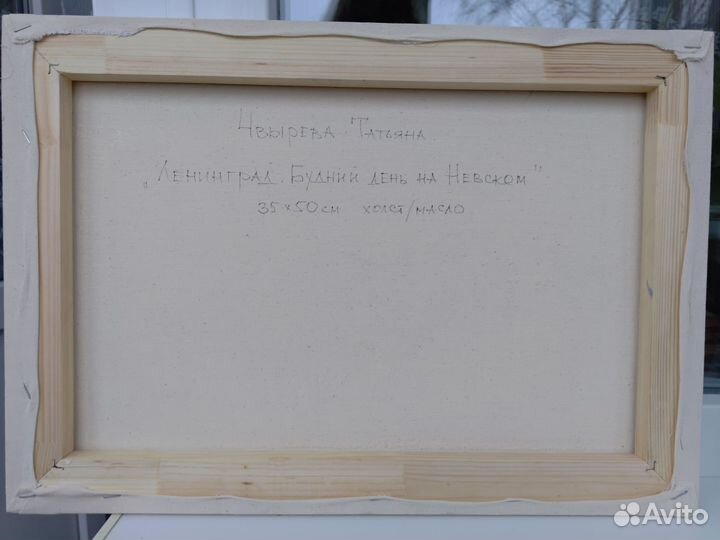 Чвырева Татьяна
„Ленинград. Будний день на Невском"
35×50см холст/масло
Avito